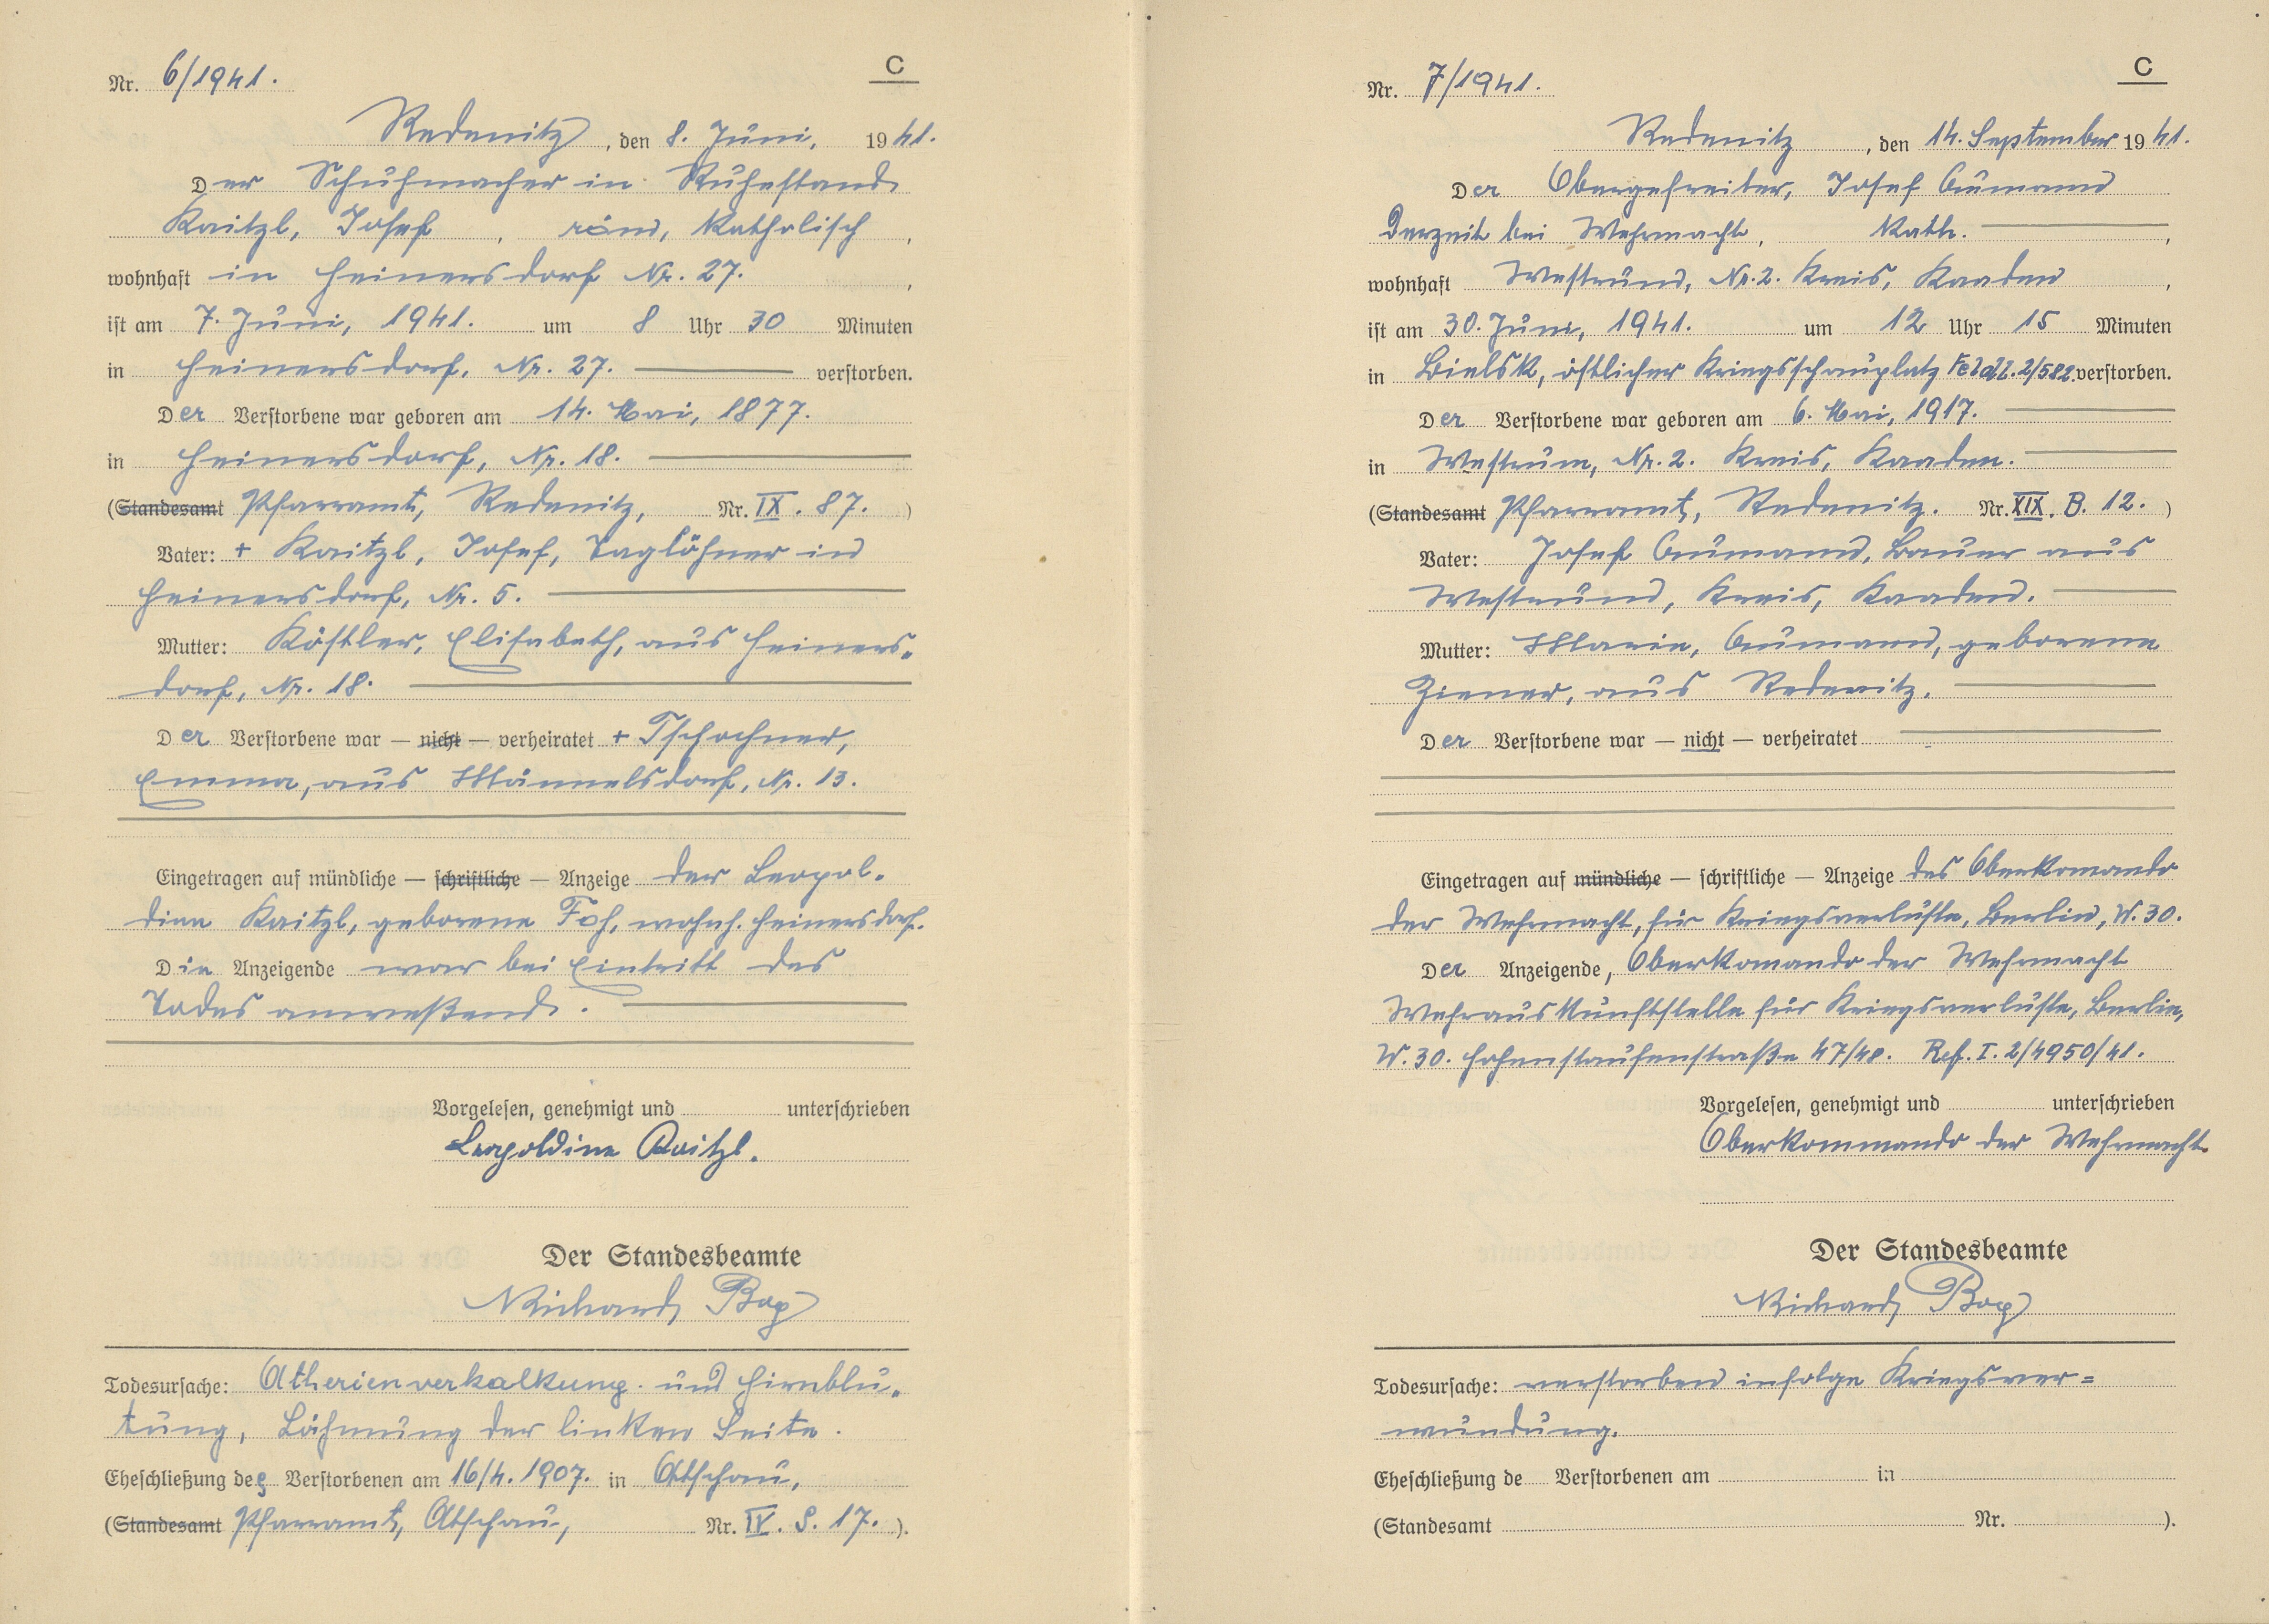 C
Nr. 6/1941.
Radenitz, den 8. Juni, 1941.
Der Schuhmacher in Ruhestand
Raitzl, Josef, röm, Katholisch,
wohnhaft in Heinersdorf Nr. 27.,
ist am 7. Juni, 1941. um 8 Uhr 30 Minuten
in Heinersdorf, Nr. 27. verstorben.
Der Verstorbene war geboren am 14. Mai, 1877.
in Heinersdorf, Nr. 18.
(Standesamt Pfarramt, Radenitz, Nr. IX. 87. )
Vater: + Raitzl, Josef, Taglöhner in
Heinersdorf, Nr. 5.
Mutter: Köstler, Elisabeth, aus Heiners-
dorf, Nr. 18.
Der Verstorbene war — nicht — verheiratet + Tschochner,
Emma, aus Männelsdorf, Nr. 13.
Eingetragen auf mündliche — schriftliche — Anzeige der Leopol-
dine Raitzl, geborene Foh, wohnh. Heinersdorf.
Die Anzeigende war bei Eintritt des
Todes anweßend.
Vorgelesen, genehmigt und unterschrieben
Leopoldine Raitzl.
Der Standesbeamte
Richard
Todesursache: Atherienverkalkung. und Hirnblu-
tung, Lähmung der linken Seite.
Eheschließung des Verstorbenen am 16/4. 1907. in Attschau,
(Standesamt Pfarramt, Atschau, Nr. IV. S. 17. ).
C
Nr. 7/1941.
Radenitz, den 14. September 1941.
Der Obergefreiter, Josef Aumann
Derzeit bei Wehrmacht, Kath.,
wohnhaft Westrum, Nr. 2. Kreis, Kaaden,
ist am 30. Juni, 1941. um 12 Uhr 15 Minuten
in Bielsk, östlicher Kriegsschauplatz 2/582. verstorben.
Der Verstorbene war geboren am 6. Mai, 1917.
in Westrum, Nr. 2. Kreis, Kaaden.
(Standesamt Pfarramt, Radenitz. Nr. XIX. B. 12. )
Vater: Josef Aumann, Bauer aus
Westrum, Kreis, Kaaden.
Mutter: Marie, Aumann, geborene
Ziener, aus Radenitz.
Der Verstorbene war — nicht — verheiratet
Eingetragen auf mündliche — schriftliche — Anzeige des Oberkomando
der Wehrmacht, für Kriegsverluste, Berlin, W. 30.
Der Anzeigende, Oberkomando der Wehrmacht
Wehrauskunftstelle für Kriegsverluste, Berlin,
W. 30. Hohenstaufenstraße 47/48. Ref. I. 2/4950/41.
Vorgelesen, genehmigt und unterschrieben
Oberkommando der Wehrmacht.
Der Standesbeamte
Richard
Todesursache: verstorben infolge Kriegsver=
wundung.
Eheschließung de Verstorbenen am in
(Standesamt Nr. ).